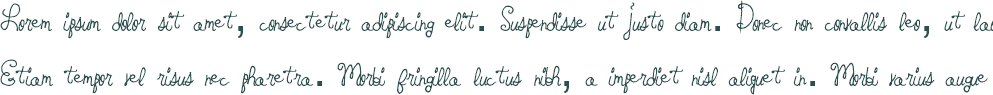 Lorem ipsum dolor sit amet, consectetur adipiscing elit. Suspendisse ut justo diam. Donec non convallis leo, ut
Etiam tempor vel risus nec pharetra. Morbi fringilla luctus nibh, a imperdiet nisl aliquet in. Morbi varius augue